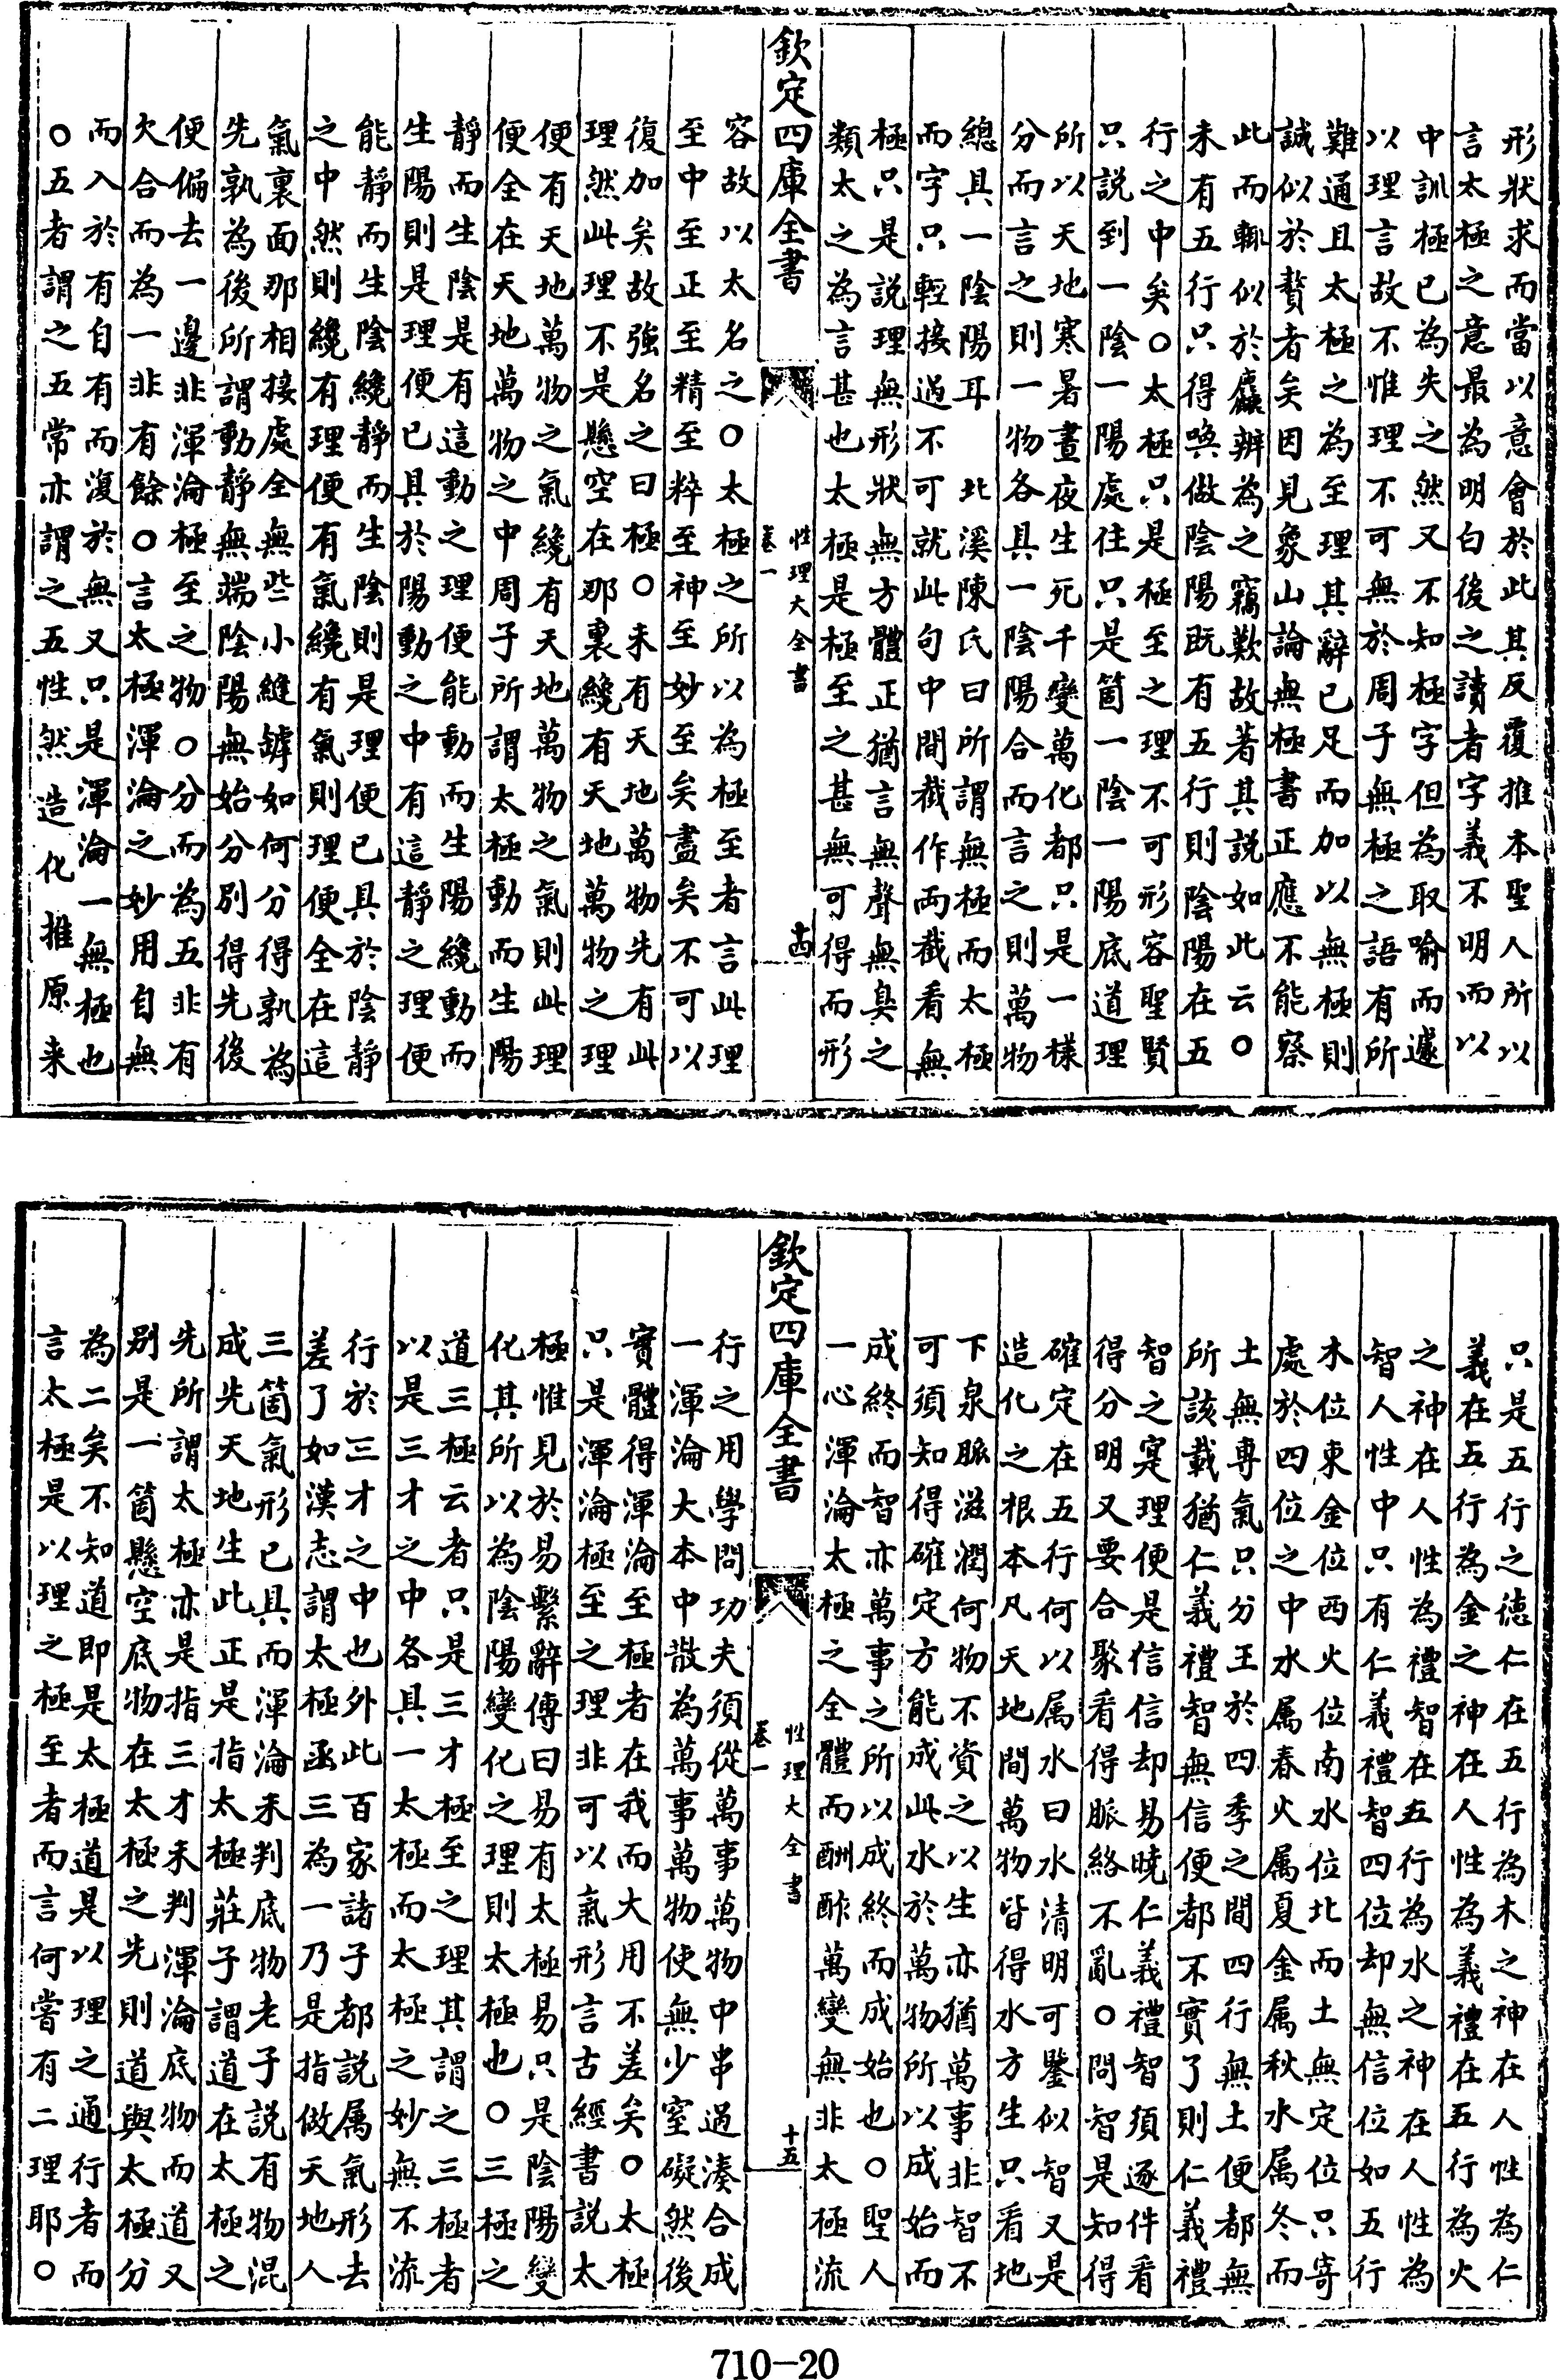 形狀求而當以意會於此其反覆推本聖人所以
言太極之意最為明白後之讀者字義不明而以
中訓極已為失之然又不知極字但為取喻而遽
以理言故不惟理不可無於周子無極之語有所
難通且太極之為至理其辭已足而加以無極則
誠似於贅者矣因見象山論無極書正應不能察
此而輒似於麤辨為之竊歎故著其説如此云○
未有五行只得喚做陰陽既有五行則陰陽在五
行之中矣○太極只是極至之理不可形容聖賢
只説到一陰一陽處住只是箇一陰一陽底道理
所以天地寒暑晝夜生死千變萬化都只是一様
分而言之則一物各具一陰陽合而言之則萬物
總具一陰陽耳　北溪陳氏曰所謂無極而太極
而字只輕接過不可就此句中間截作兩截看無
極只是説理無形狀無方體正猶言無聲無臭之
類太之為言甚也太極是極至之甚無可得而形
欽定四庫全書
性理大全書
卷一
十四
容故以太名之○太極之所以為極至者言此理
至中至正至精至粹至神至妙至矣盡矣不可以
復加矣故強名之曰極○未有天地萬物先有此
理然此理不是懸空在那裏纔有天地萬物之理
便有天地萬物之氣纔有天地萬物之氣則此理
便全在天地萬物之中周子所謂太極動而生陽
靜而生陰是有這動之理便能動而生陽纔動而
生陽則是理便已具於陽動之中有這靜之理便
能靜而生陰纔靜而生陰則是理便已具於陰靜
之中然則纔有理便有氣纔有氣則理便全在這
氣裏面那相接處全無些小縫罅如何分得孰為
先孰為後所謂動靜無端陰陽無始分別得先後
便偏去一邊非渾淪極至之物○分而為五非有
欠合而為一非有餘○言太極渾淪之妙用自無
而入於有自有而復於無又只是渾淪一無極也
○五者謂之五常亦謂之五性然造化推原来
只是五行之徳仁在五行為木之神在人性為仁
義在五行為金之神在人性為義禮在五行為火
之神在人性為禮智在五行為水之神在人性為
智人性中只有仁義禮智四位却無信位如五行
木位東金位西火位南水位北而土無定位只寄
處於四位之中水属春火属夏金属秋水属冬而
土無専氣只分王於四季之間四行無土便都無
所該載猶仁義禮智無信便都不實了則仁義禮
智之寔理便是信信却易曉仁義禮智須逐件看
得分明又要合聚看得脈絡不亂○問智是知得
確定在五行何以属水曰水清明可鑒似智又是
造化之根本凡天地間萬物皆得水方生只看地
下泉脈滋潤何物不資之以生亦猶萬事非智不
可須知得確定方能成此水於萬物所以成始而
成終而智亦萬事之所以成終而成始也○聖人
一心渾淪太極之全體而酬酢萬變無非太極流
欽定四庫全書
性理大全書
卷一
十五
行之用學問功夫須從萬事萬物中串過湊合成
一渾淪大本中散為萬事萬物使無少窒礙然後
實體得渾淪至極者在我而大用不差矣○太極
只是渾淪極至之理非可以氣形言古經書説太
極惟見於易繫辭傳曰易有太極易只是陰陽變
化其所以為陰陽變化之理則太極也○三極之
道三極云者只是三才極至之理其謂之三極者
以是三才之中各具一太極而太極之妙無不流
行於三才之中也外此百家諸子都説属氣形去
差了如漢志謂太極函三為一乃是指做天地人
三箇氣形已具而渾淪未判底物老子説有物混
成先天地生此正是指太極莊子謂道在太極之
先所謂太極亦是指三才未判渾淪底物而道又
別是一箇懸空底物在太極之先則道與太極分
為二矣不知道即是太極道是以理之通行者而
言太極是以理之極至者而言何嘗有二理耶○
710-20